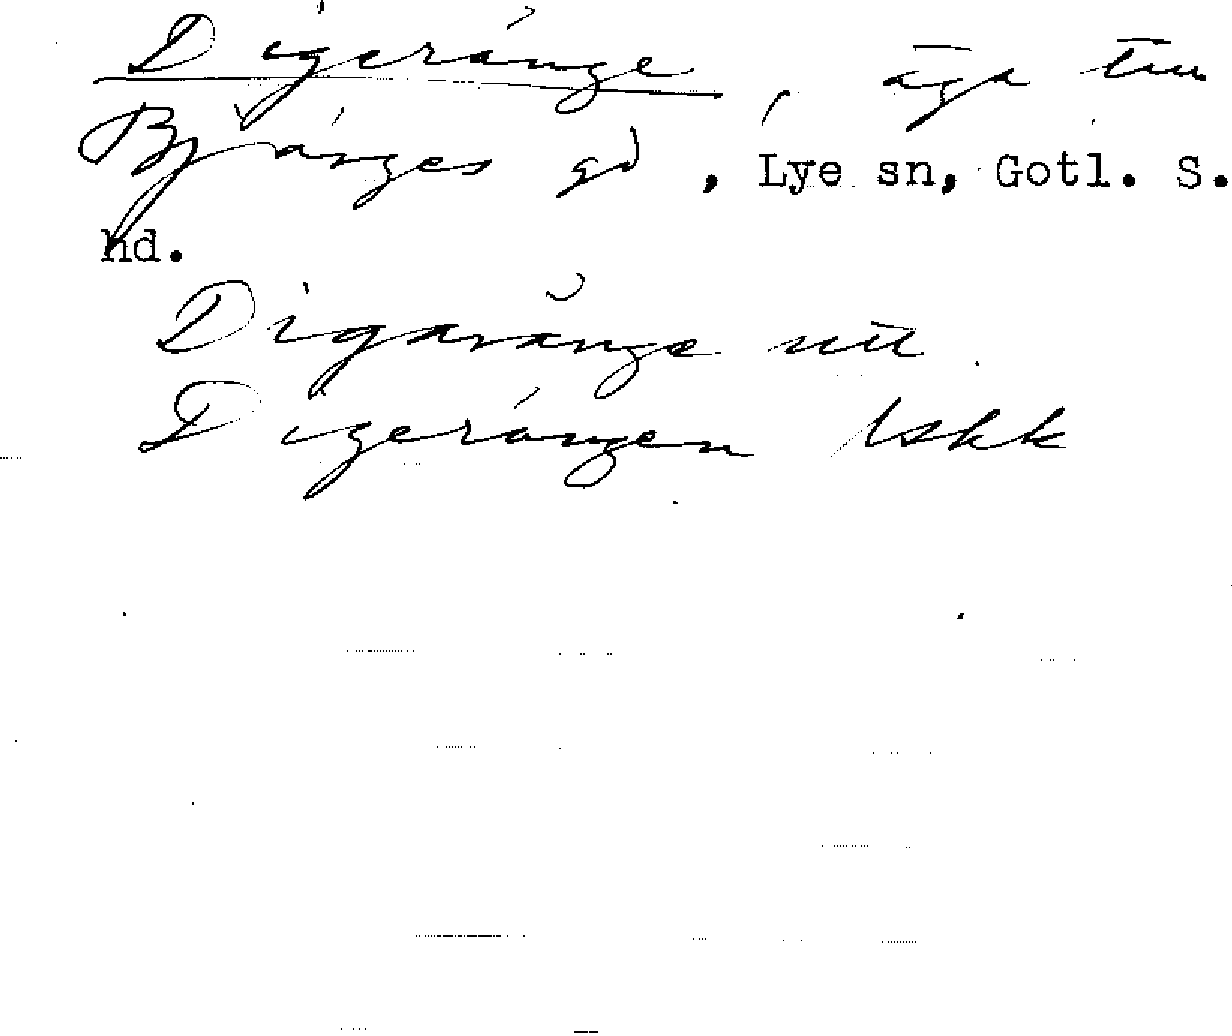 Digeränge, äga till
Bjärges gd, Lye sn, Gotl. S.
hd.
Digaränge utt
Digerängen lskk